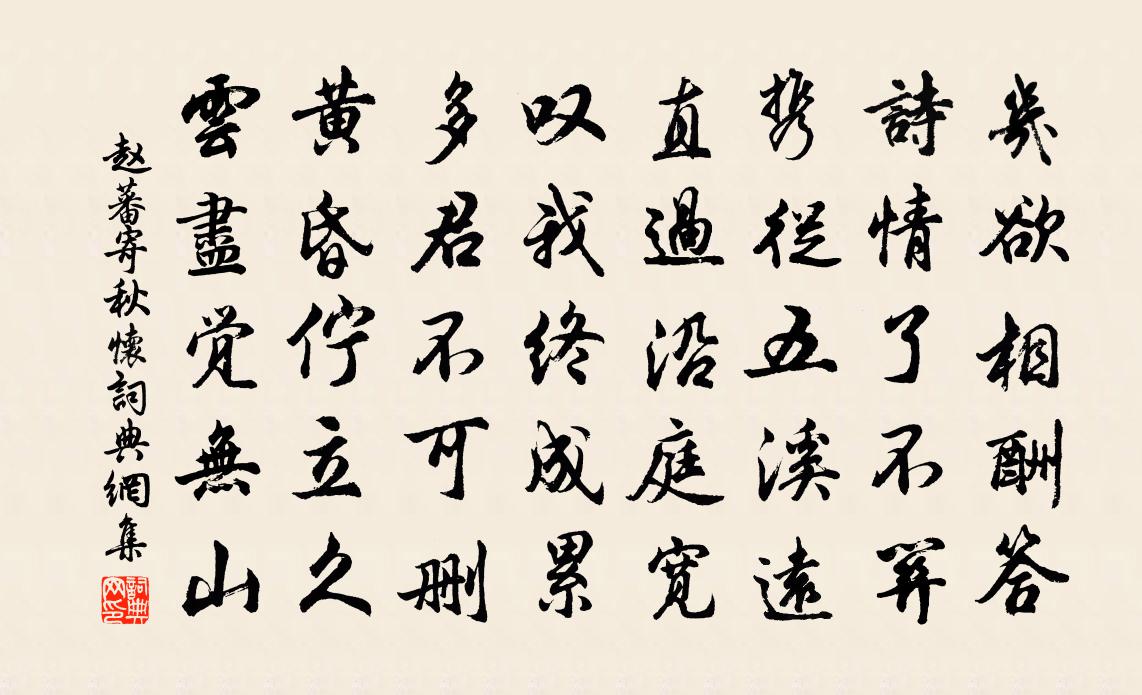 幾欲相酬答
詩情了不關
携從五溪遠
直過沿庭寬
叹我终成累
多君不可删
黄昏佇立久
雲盡觉無山
赵蕃寄秋懷詞典網集
詞典网印